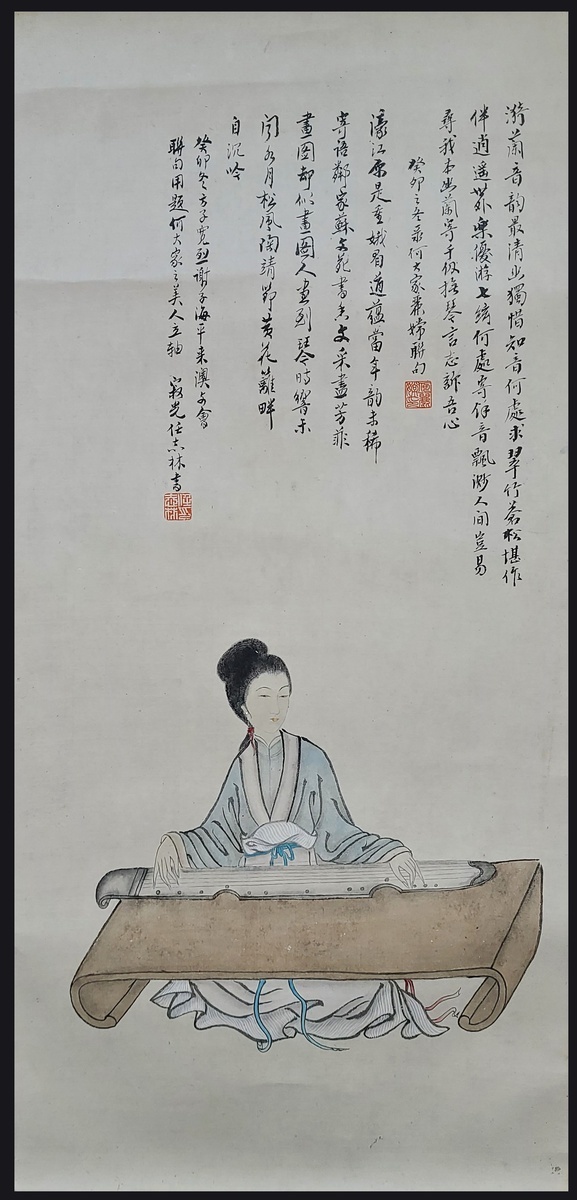 漪蘭音韻最清幽獨惜知音何處求翠竹蒼松堪作
伴逍遥琴樂優游七絃何處寄餘音飄渺人間豈易
尋我本幽蘭寄千仭撫琴言志訴吾心
癸卯之冬菉何大家 聯句
濠江原是重娥眉道蘊當年韻未稀
寄語鄰家蘇文苑書香文采盡芳菲
畫圖却似畫圖人畫到琴時響未
聞夕月松風陶靖節黄花籬畔
自沉吟
癸卯冬方子寬烈謝子海平来澳文會
聯句用題何大家之美人立軸 寂光任志林書